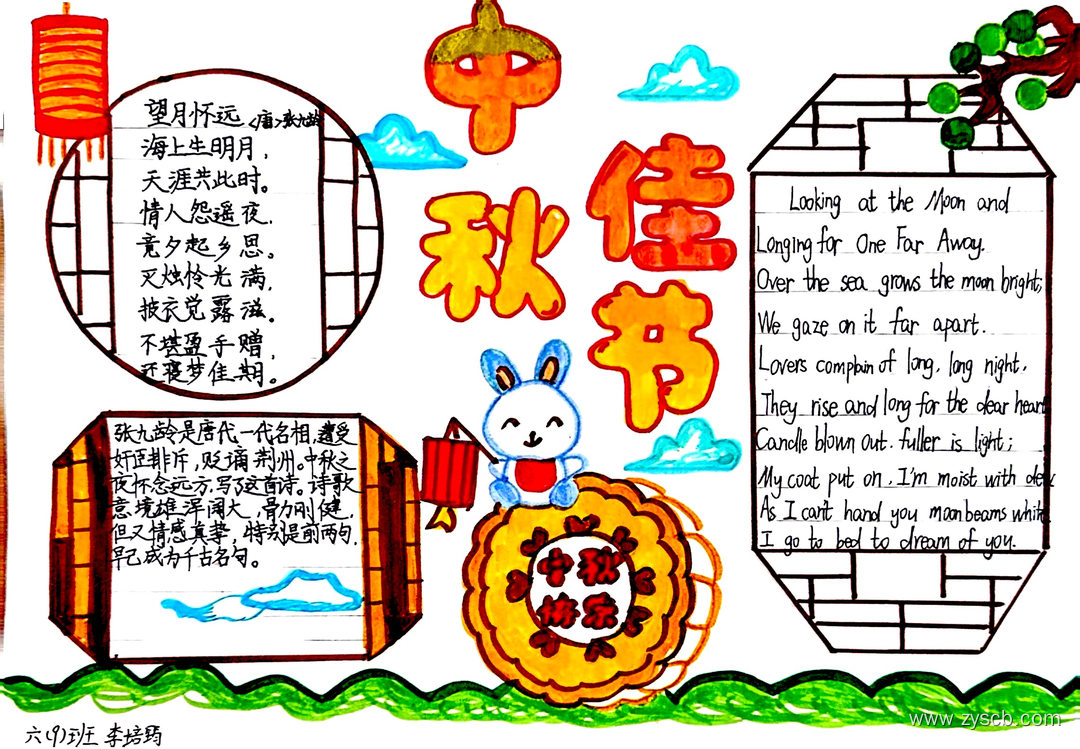 中秋佳节
望月怀远 <唐>张九龄
海上生明月，
天涯共此时。
情人怨遥夜，
竟夕起乡思。
灭烛怜光满，
披衣觉露滋。
不堪盈手赠，
还寝梦佳期。
张九龄是唐代一代名相，遭受
奸臣排斥，贬谪荆州。中秋之
夜怀念远方，写了这首诗。诗歌
意境雄浑阔大，骨力刚健，
但又情感真挚，特别是前两句，
早已成为千古名句。
中秋
快乐
Looking at the Moon and
Longing for One Far Away.
Over the sea grows the moon bright;
We gaze on it far apart.
Lovers complain of long, long night,
They rise and long for the dear heart
Candle blown out. fuller is light;
My coat put on, I'm moist with dew.
As I can't hand you moonbeams white
I go to bed to dream of you.
六(9)班 李培
www.zyscb.com